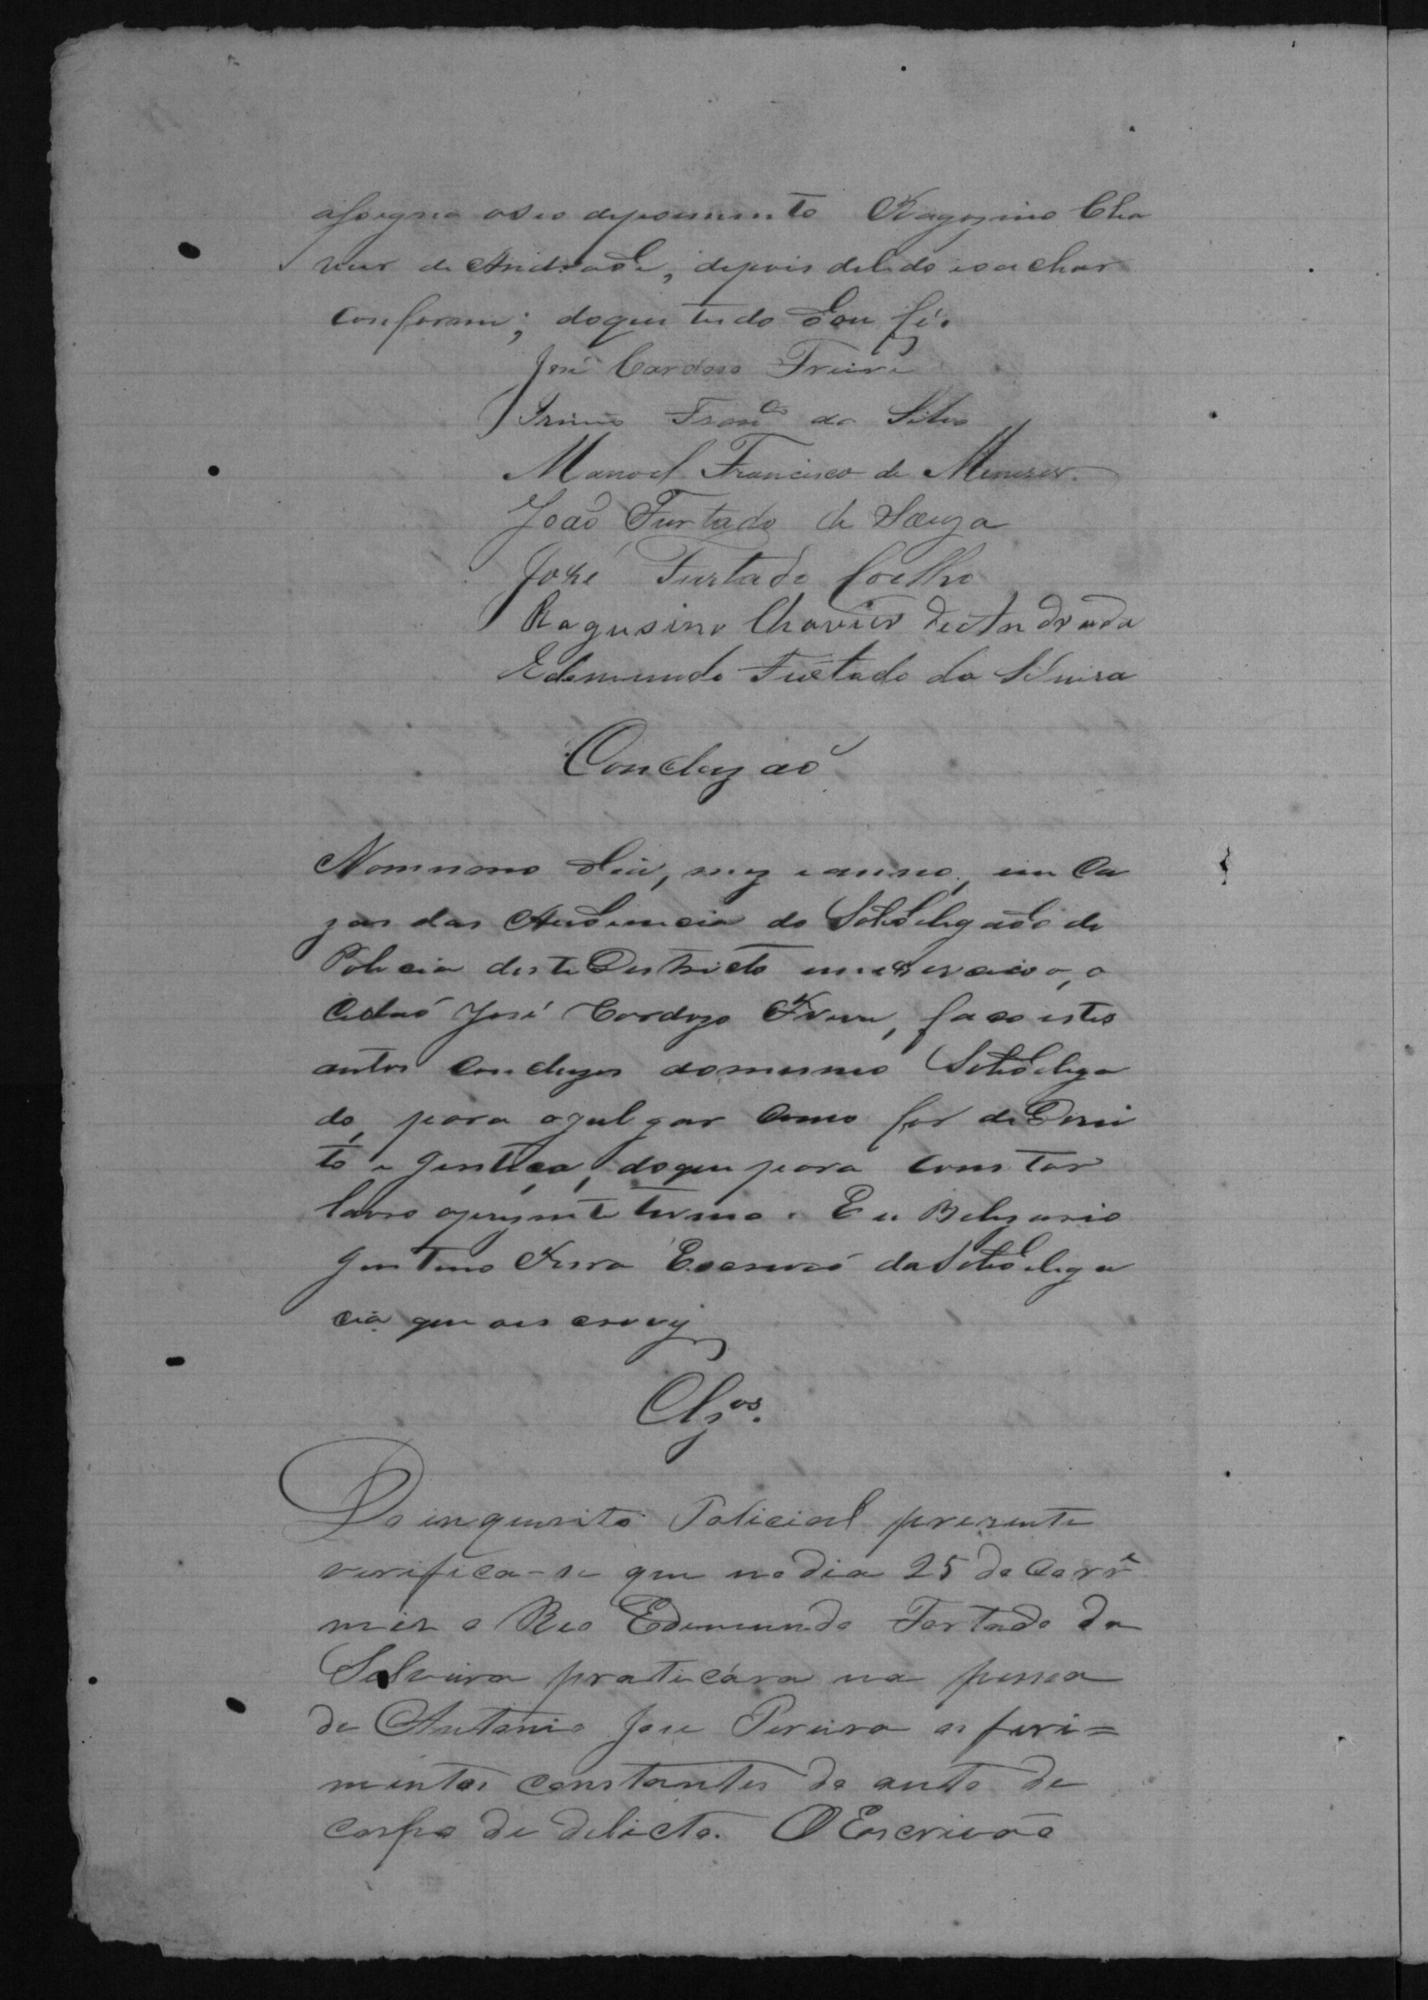 assigna o seo depoimento Ragosino Cha
vier de Andrade, depois de lido e o achar
conforme; do que tudo dou fé.
José Cardoso Freire
Irineo Franco da Silva
Manoel Francisco de Menezes
João Furtado de Souza
José Furtado Coelho
Ragusino Chavier de Andrada
Edemundo Furtado da Silveira
Concluzaõ
No mesmo dia, mez e anno, em Ca
zas das Audiencia do Subdelegado de
Policia deste Districto em exercicio, o
Cidaõ José Cardozo Freire, faco estes
autos concluzos ao mesmo Subdelega
do, para o julgar como for de Direi
to e Justiça, do que para constar
lavro o prezente termo. Eu Belizario
Justino Escrivaõ da Subdelega
cia que o escrevy
Clzos.
Do inquerito Policial prezente
verifica-se que no dia 25 do Corre
mez o Reo Edemundo Fortado da
Silveira praticára na pessoa
de Antonio José Pereira os feri=
mentos constantes do auto de
corpo de delicto. O Escrivaõ